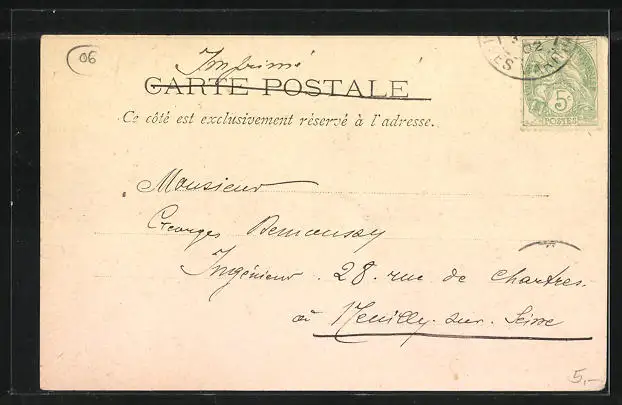 06
Imprimé
CARTE POSTALE
Ce côté est exclusivement réservé à l'adresse.
02
5c
POSTES
Monsieur
Georges
Ingénieur. 28. rue de Chartres.
à Neuilly-sur-Seine
5,-